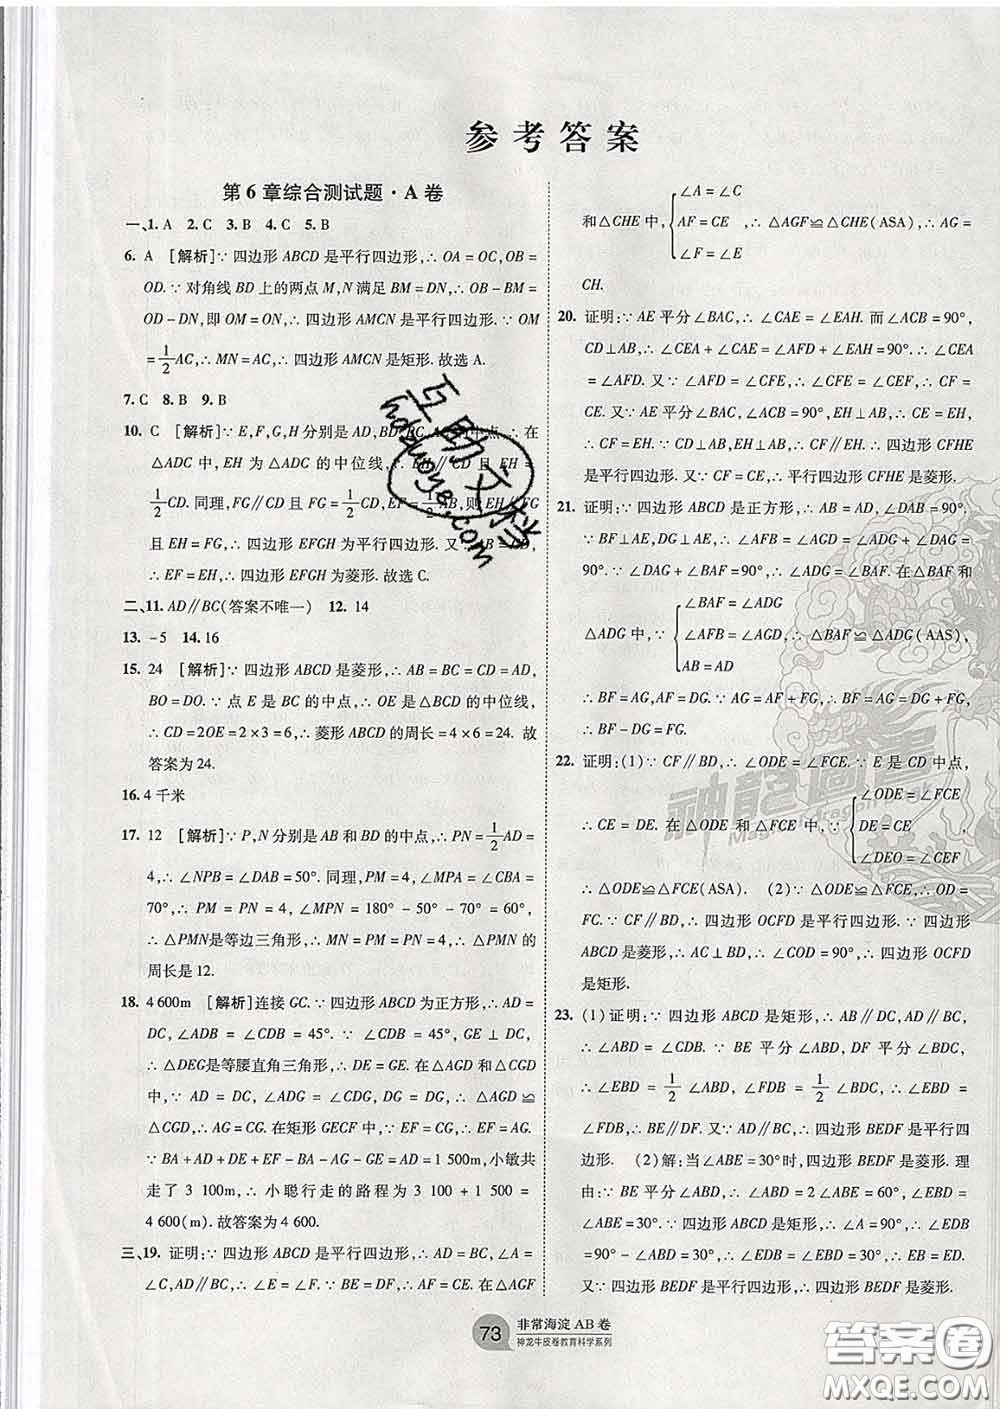 参考答案
第6章综合测试题·A卷
一、1. A 2. C 3. B 4. C 5. B
6. A [解析]∵四边形ABCD是平行四边形,∴OA=OC,OB=
OD.∵对角线BD上的两点M,N满足BM=DN,∴OB-BM=
OD-DN,即OM=ON,∴四边形AMCN是平行四边形.∵OM
=1/2AC,∴MN=AC,∴四边形AMCN是矩形.故选A.
7. C 8. B 9. B
10. C [解析]∵E,F,G,H分别是AD,BD,BC,AC的中点,∴在
△ADC中,EH为△ADC的中位线,∴EH∥CD且EH=
1/2CD.同理,FG∥CD且FG=1/2CD,EF=1/2AB,则EH∥FG
且EH=FG,∴四边形EFGH为平行四边形.又∵AB=CD,
∴EF=EH,∴四边形EFGH为菱形.故选C.
二、11. AD∥BC(答案不唯一) 12. 14
13. -5 14. 16
15. 24 [解析]∵四边形ABCD是菱形,∴AB=BC=CD=AD,
BO=DO.∵点E是BC的中点,∴OE是△BCD的中位线,
∴CD=2OE=2×3=6,∴菱形ABCD的周长=4×6=24.故
答案为24.
16. 4千米
17. 12 [解析]∵P,N分别是AB和BD的中点,∴PN=1/2AD=
4,∴∠NPB=∠DAB=50°.同理,PM=4,∠MPA=∠CBA=
70°,∴PM=PN=4,∠MPN=180°-50°-70°=60°,
∴△PMN是等边三角形,∴MN=PM=PN=4,∴△PMN的
周长是12.
18. 4 600m [解析]连接GC.∵四边形ABCD为正方形,∴AD=
DC,∠ADB=∠CDB=45°.∵∠CDB=45°,GE⊥DC,
∴△DEG是等腰直角三角形,∴DE=GE.在△AGD和△GDC
中,∵AD=DC,∠ADG=∠CDG,DG=DG,∴△AGD≌
△CGD,∴AG=CG.在矩形GECF中,∴CG=EF,∴EF=AG.
∵BA+AD+DE+EF-BA-AG-GE=AD=1 500m,小敏共
走了3 100m,∴小聪行走的路程为3 100+1 500=
4 600(m).故答案为4 600.
三、19. 证明:∵四边形ABCD是平行四边形,∴AD=BC,∠A=
∠C,AD∥BC,∴∠E=∠F.∵BE=DF,∴AF=CE.在△AGF
∠A=∠C
和△CHE中,{AF=CE,∴△AGF≌△CHE(ASA),∴AG=
∠F=∠E
CH.
20. 证明:∵AE平分∠BAC,∴∠CAE=∠EAH.而∠ACB=90°,
CD⊥AB,∴∠CEA+∠CAE=∠AFD+∠EAH=90°,∴∠CEA
=∠AFD.又∵∠AFD=∠CFE,∴∠CFE=∠CEF,∴CF=
CE.又∵AE平分∠BAC,EC⊥AC,EH⊥AB,∴CE=EH,
∴CF=EH.∵CD⊥AB,EH⊥AB,∴CF∥EH.∴四边形CFHE
是平行四边形.又∵CF=CE,∴平行四边形CFHE是菱形.
21. 证明:∵四边形ABCD是正方形,∴AB=AD,∠DAB=90°.
∵BF⊥AE,DG⊥AE,∴∠AFB=∠AGD=∠ADG+∠DAG=
90°.∵∠DAG+∠BAF=90°,∴∠ADG=∠BAF.在△BAF和
∠BAF=∠ADG
△ADG中,∵{∠AFB=∠AGD,∴△BAF≌△ADG(AAS),
AB=AD
∴BF=AG,AF=DG.∵AG=AF+FG,∴BF=AG=DG+FG,
∴BF-DG=FG.
22. 证明:(1)∵CF∥BD,∴∠ODE=∠FCE.∵E是CD中点,
∠ODE=∠FCE
∴CE=DE.在△ODE和△FCE中,∵{DE=CE,
∠DEO=∠CEF
∴△ODE≌△FCE(ASA). (2)∵△ODE≌△FCE,∴OD=
FC.∵CF∥BD,∴四边形OCFD是平行四边形.∵四边形
ABCD是菱形,∴AC⊥BD,∴∠COD=90°,∴四边形OCFD
是矩形.
23. (1)证明:∵四边形ABCD是矩形,∴AB∥DC,AD∥BC,
∴∠ABD=∠CDB.∵BE平分∠ABD,DF平分∠BDC,
∴∠EBD=1/2∠ABD,∠FDB=1/2∠BDC,∴∠EBD=
∠FDB,∴BE∥DF.又∵AD∥BC,∴四边形BEDF是平行四
边形. (2)解:当∠ABE=30°时,四边形BEDF是菱形.理
由:∵BE平分∠ABD,∴∠ABD=2∠ABE=60°,∠EBD=
∠ABE=30°.∵四边形ABCD是矩形,∴∠A=90°,∴∠EDB
=90°-∠ABD=30°,∴∠EDB=∠EBD=30°,∴EB=ED.
又∵四边形BEDF是平行四边形,∴四边形BEDF是菱形.
互助文档
hdzuoye.com
神龙图书
73
非常海淀AB卷
神龙牛皮卷教育科学系列
答案卷
MXQE.COM